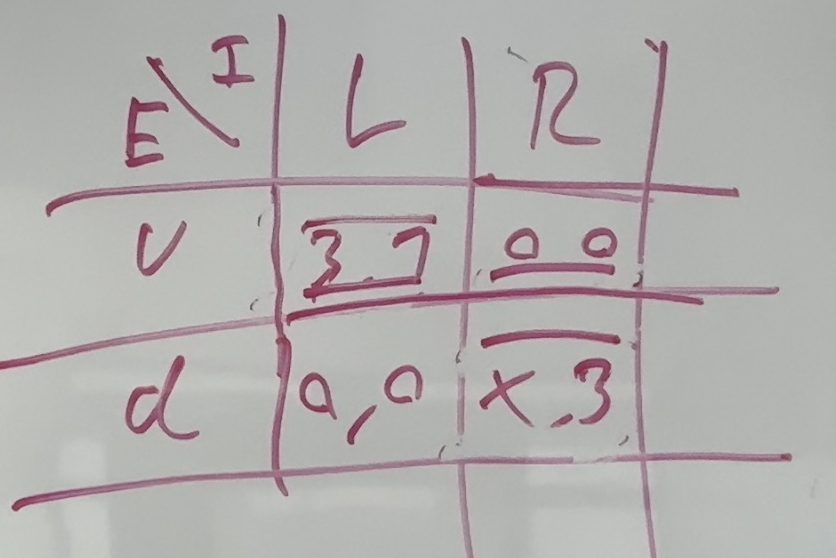 E \ I L R
U 3.7 0 0
d 0,0 x.3